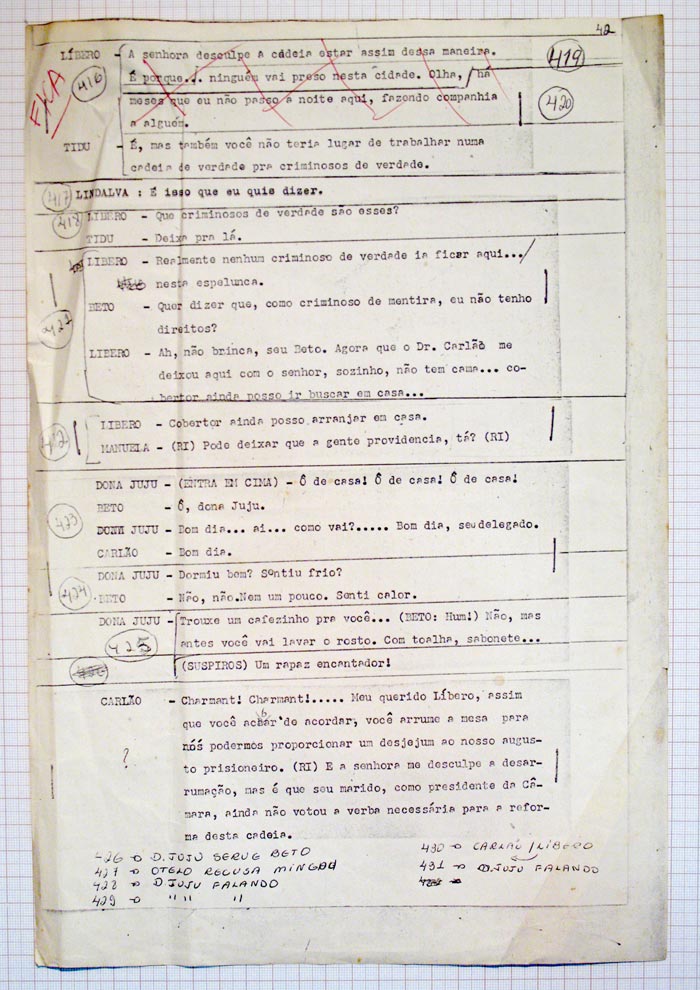 42
LÍBERO - A senhora desculpe a cadeia estar assim dessa maneira.
É porque... ninguém vai preso nesta cidade. Olha, há
meses que eu não passo a noite aqui, fazendo companhia
a alguém.
416
419
420
TIDU - É, mas também você não teria lugar de trabalhar numa
cadeia de verdade pra criminosos de verdade.
417 LINDALVA : É isso que eu quis dizer.
418 LIBERO - Que criminosos de verdade são esses?
TIDU - Deixa pra lá.
LIBERO - Realmente nenhum criminoso de verdade ia ficar aqui.../
nesta espelunca.
421
BETO - Quer dizer que, como criminoso de mentira, eu não tenho
direitos?
LIBERO - Ah, não brinca, seu Beto. Agora que o Dr. Carlão me
deixou aqui com o senhor, sozinho, não tem cama... co-
bertor ainda posso ir buscar em casa...
LIBERO - Cobertor ainda posso arranjar em casa.
422
MANUELA - (RI) Pode deixar que a gente providencia, tá? (RI)
DONA JUJU - (ENTRA EM CIMA) - Ô de casa! Ô de casa! Ô de casa!
BETO - Ô, dona Juju.
423
DONA JUJU - Bom dia... ai... como vai?..... Bom dia, seu delegado.
CARLÃO - Bom dia.
DONA JUJU - Dormiu bem? Sentiu frio?
424
BETO - Não, não.Nem um pouco. Senti calor.
DONA JUJU - Trouxe um cafezinho pra você... (BETO: Hum!) Não, mas
antes você vai lavar o rosto. Com toalha, sabonete...
425
(SUSPIROS) Um rapaz encantador!
CARLÃO - Charmant! Charmant!..... Meu querido Líbero, assim
que você acabar de acordar, você arrume a mesa para
nós podermos proporcionar um desjejum ao nosso augus-
?
to prisioneiro. (RI) E a senhora me desculpe a desar-
rumação, mas é que seu marido, como presidente da Câ-
mara, ainda não votou a verba necessária para a refor-
ma desta cadeia.
426 → D. JUJU SERVE BETO
427 → OTELO RECUSA MINGAU
428 → D. JUJU FALANDO
429 → " " "
430 → CARLÃO / LÍBERO
431 → D. JUJU FALANDO